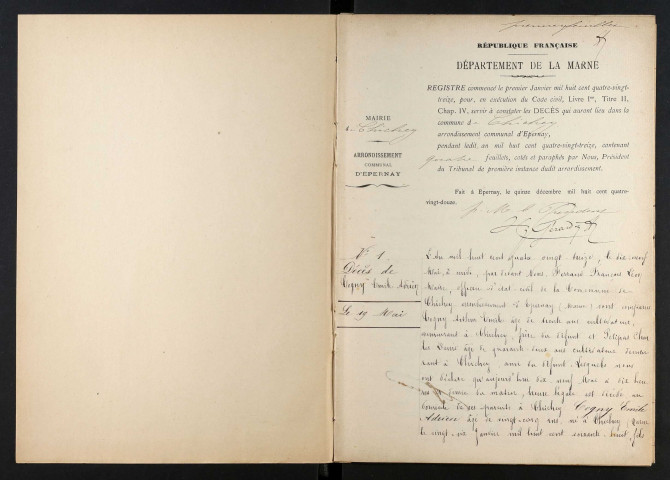 RÉPUBLIQUE FRANÇAISE
DÉPARTEMENT DE LA MARNE
REGISTRE commencé le premier Janvier mil huit cent quatre-vingt-
treize, pour, en exécution du Code civil, Livre Ier, Titre II,
Chap. IV, servir à consigner les DÉCÈS qui auront lieu dans la
commune d Chichey
arrondissement communal d'Epernay,
pendant ledit an mil huit cent quatre-vingt-treize, contenant
quatre feuillets, cotés et paraphés par Nous, Président
du Tribunal de première instance dudit arrondissement.
Fait à Epernay, le quinze décembre mil huit cent quatre-
vingt-douze.
MAIRIE
de Chichey
ARRONDISSEMENT
COMMUNAL
D'EPERNAY
N° 1
Décès de
Cogny Emile Adrien
Le 19 Mai
L'an mil huit cent quatre vingt treize, le dix neuf
Mai, à midi, par devant Nous, François
Maire, officier d'état civil de la Commune de
Chichey arrondissement d'Epernay (Marne) sont comparus
Cogny Emile âgé de trente ans cultivateur,
demeurant à Chichey, frère du défunt et
âgé de quarante deux ans cultivateur demeu
rant à Chichey, ami du défunt. Lesquels nous
ont déclaré qu'aujourd'hui dix neuf Mai à dix heu
res du matin, heure légale est décédé au
domicile de ses parents à Chichey Cogny Emile
Adrien âgé de vingt-cinq ans, né à Chichey (Marne
le vingt-six Janvier mil huit cent soixante huit, fils